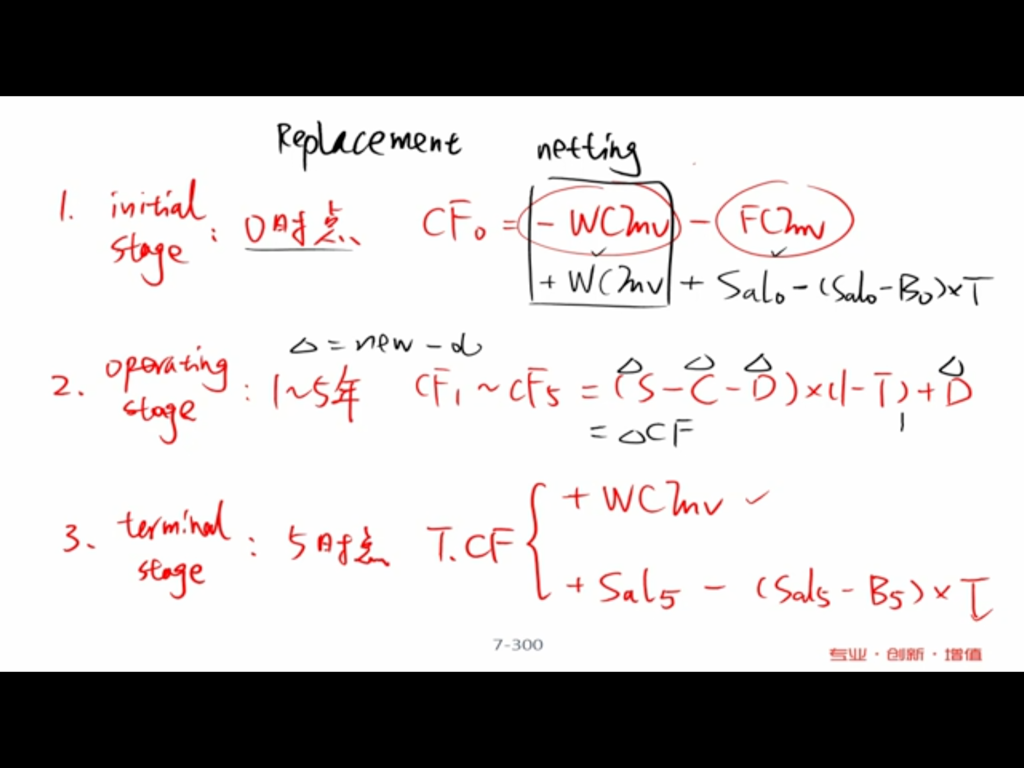 Replacement netting
1. initial stage : 0时点 CF₀ = - WCInv - FCInv
+ WCInv + Sal₀ - (Sal₀ - B₀) × T
Δ = new - old
2. operating stage : 1~5年 CF₁ ~ CF₅ = (ΔS - ΔC - ΔD) × (1 - T) + ΔD
= ΔCF
3. terminal stage : 5时点 T.CF { + WCInv ✓
+ Sal₅ - (Sal₅ - B₅) × T
7-300
专业·创新·增值